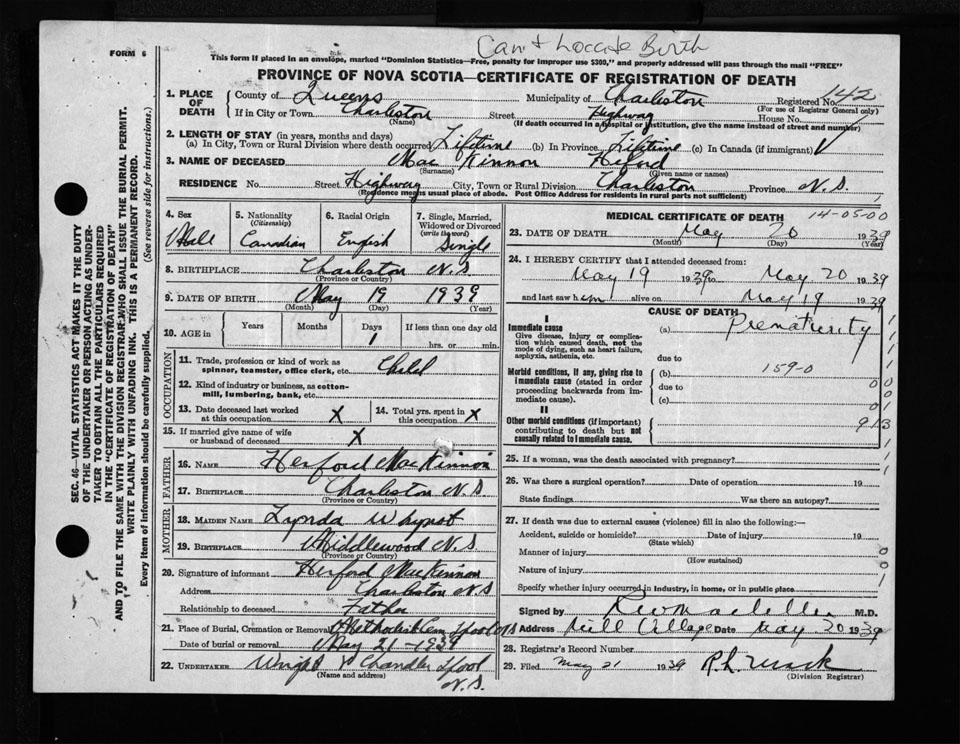 Can't Locate Birth
FORM 6
This form if placed in an envelope, marked "Dominion Statistics—Free, penalty for improper use $300," and properly addressed will pass through the mail "FREE"
PROVINCE OF NOVA SCOTIA—CERTIFICATE OF REGISTRATION OF DEATH
SEC. 46—VITAL STATISTICS ACT MAKES IT THE DUTY
OF THE UNDERTAKER OR PERSON ACTING AS UNDER-
TAKER TO OBTAIN ALL THE PARTICULARS REQUIRED
IN THE "CERTIFICATE OF REGISTRATION OF DEATH"
AND TO FILE THE SAME WITH THE DIVISION REGISTRAR WHO SHALL ISSUE THE BURIAL PERMIT.
WRITE PLAINLY WITH UNFADING INK. THIS IS A PERMANENT RECORD.
Every item of information should be carefully supplied. (See reverse side for instructions.)
1. PLACE OF DEATH County of Queens Municipality of Charleston Registered No. 142
(For use of Registrar General only)
If in City or Town Charleston Street Highway House No.
(Name) (If death occurred in a hospital or institution, give the name instead of street and number)
2. LENGTH OF STAY (in years, months and days)
(a) In City, Town or Rural Division where death occurred Lifetime (b) In Province Lifetime (c) In Canada (if immigrant)
3. NAME OF DECEASED Mac Kinnon
(Surname) (Given name or names)
RESIDENCE No. Street Highway City, Town or Rural Division Charleston Province N.S.
(Residence means usual place of abode. Post Office Address for residents in rural parts not sufficient)
4. Sex Male
5. Nationality (Citizenship) Canadian
6. Racial Origin English
7. Single, Married, Widowed or Divorced (write the word) Single
8. BIRTHPLACE Charleston N.S
(Province or Country)
9. DATE OF BIRTH May 19 1939
(Month) (Day) (Year)
10. AGE in Years Months Days 1 If less than one day old hrs. or min.
OCCUPATION
11. Trade, profession or kind of work as spinner, teamster, office clerk, etc. Child
12. Kind of industry or business, as cotton-mill, lumbering, bank, etc.
13. Date deceased last worked at this occupation X 14. Total yrs. spent in this occupation X
15. If married give name of wife or husband of deceased X
FATHER
16. NAME Herford MacKinnon
17. BIRTHPLACE Charleston N.S
(Province or Country)
MOTHER
18. MAIDEN NAME Lynda Whynot
19. BIRTHPLACE Middlewood N.S
(Province or Country)
20. Signature of informant Herford MacKinnon
Address Charleston N.S
Relationship to deceased Father
21. Place of Burial, Cremation or Removal Methodist Cem
Date of burial or removal May 21-1939
22. UNDERTAKER Wright & Chandler Lpool
(Name and address) N.S.
MEDICAL CERTIFICATE OF DEATH 14-05-00
23. DATE OF DEATH May 20 1939
(Month) (Day) (Year)
24. I HEREBY CERTIFY that I attended deceased from:
May 19 1939 to May 20 1939
and last saw him alive on May 19 1939
CAUSE OF DEATH
I
Immediate cause
Give disease, injury or complication which caused death, not the mode of dying, such as heart failure, asphyxia, asthenia, etc.
(a) Prematurity
due to
Morbid conditions, if any, giving rise to immediate cause (stated in order proceeding backwards from immediate cause).
(b) 159-0
due to
(c)
II
Other morbid conditions (if important) contributing to death but not causally related to immediate cause. 913
25. If a woman, was the death associated with pregnancy?
26. Was there a surgical operation? Date of operation 19
State findings Was there an autopsy?
27. If death was due to external causes (violence) fill in also the following:—
Accident, suicide or homicide? Date of injury 19
(State which)
Manner of injury
(How sustained)
Nature of injury
Specify whether injury occurred in industry, in home, or in public place
Signed by M.D.
Address Mill Village Date May 20 1939
28. Registrar's Record Number
29. Filed May 21 1939
(Division Registrar)